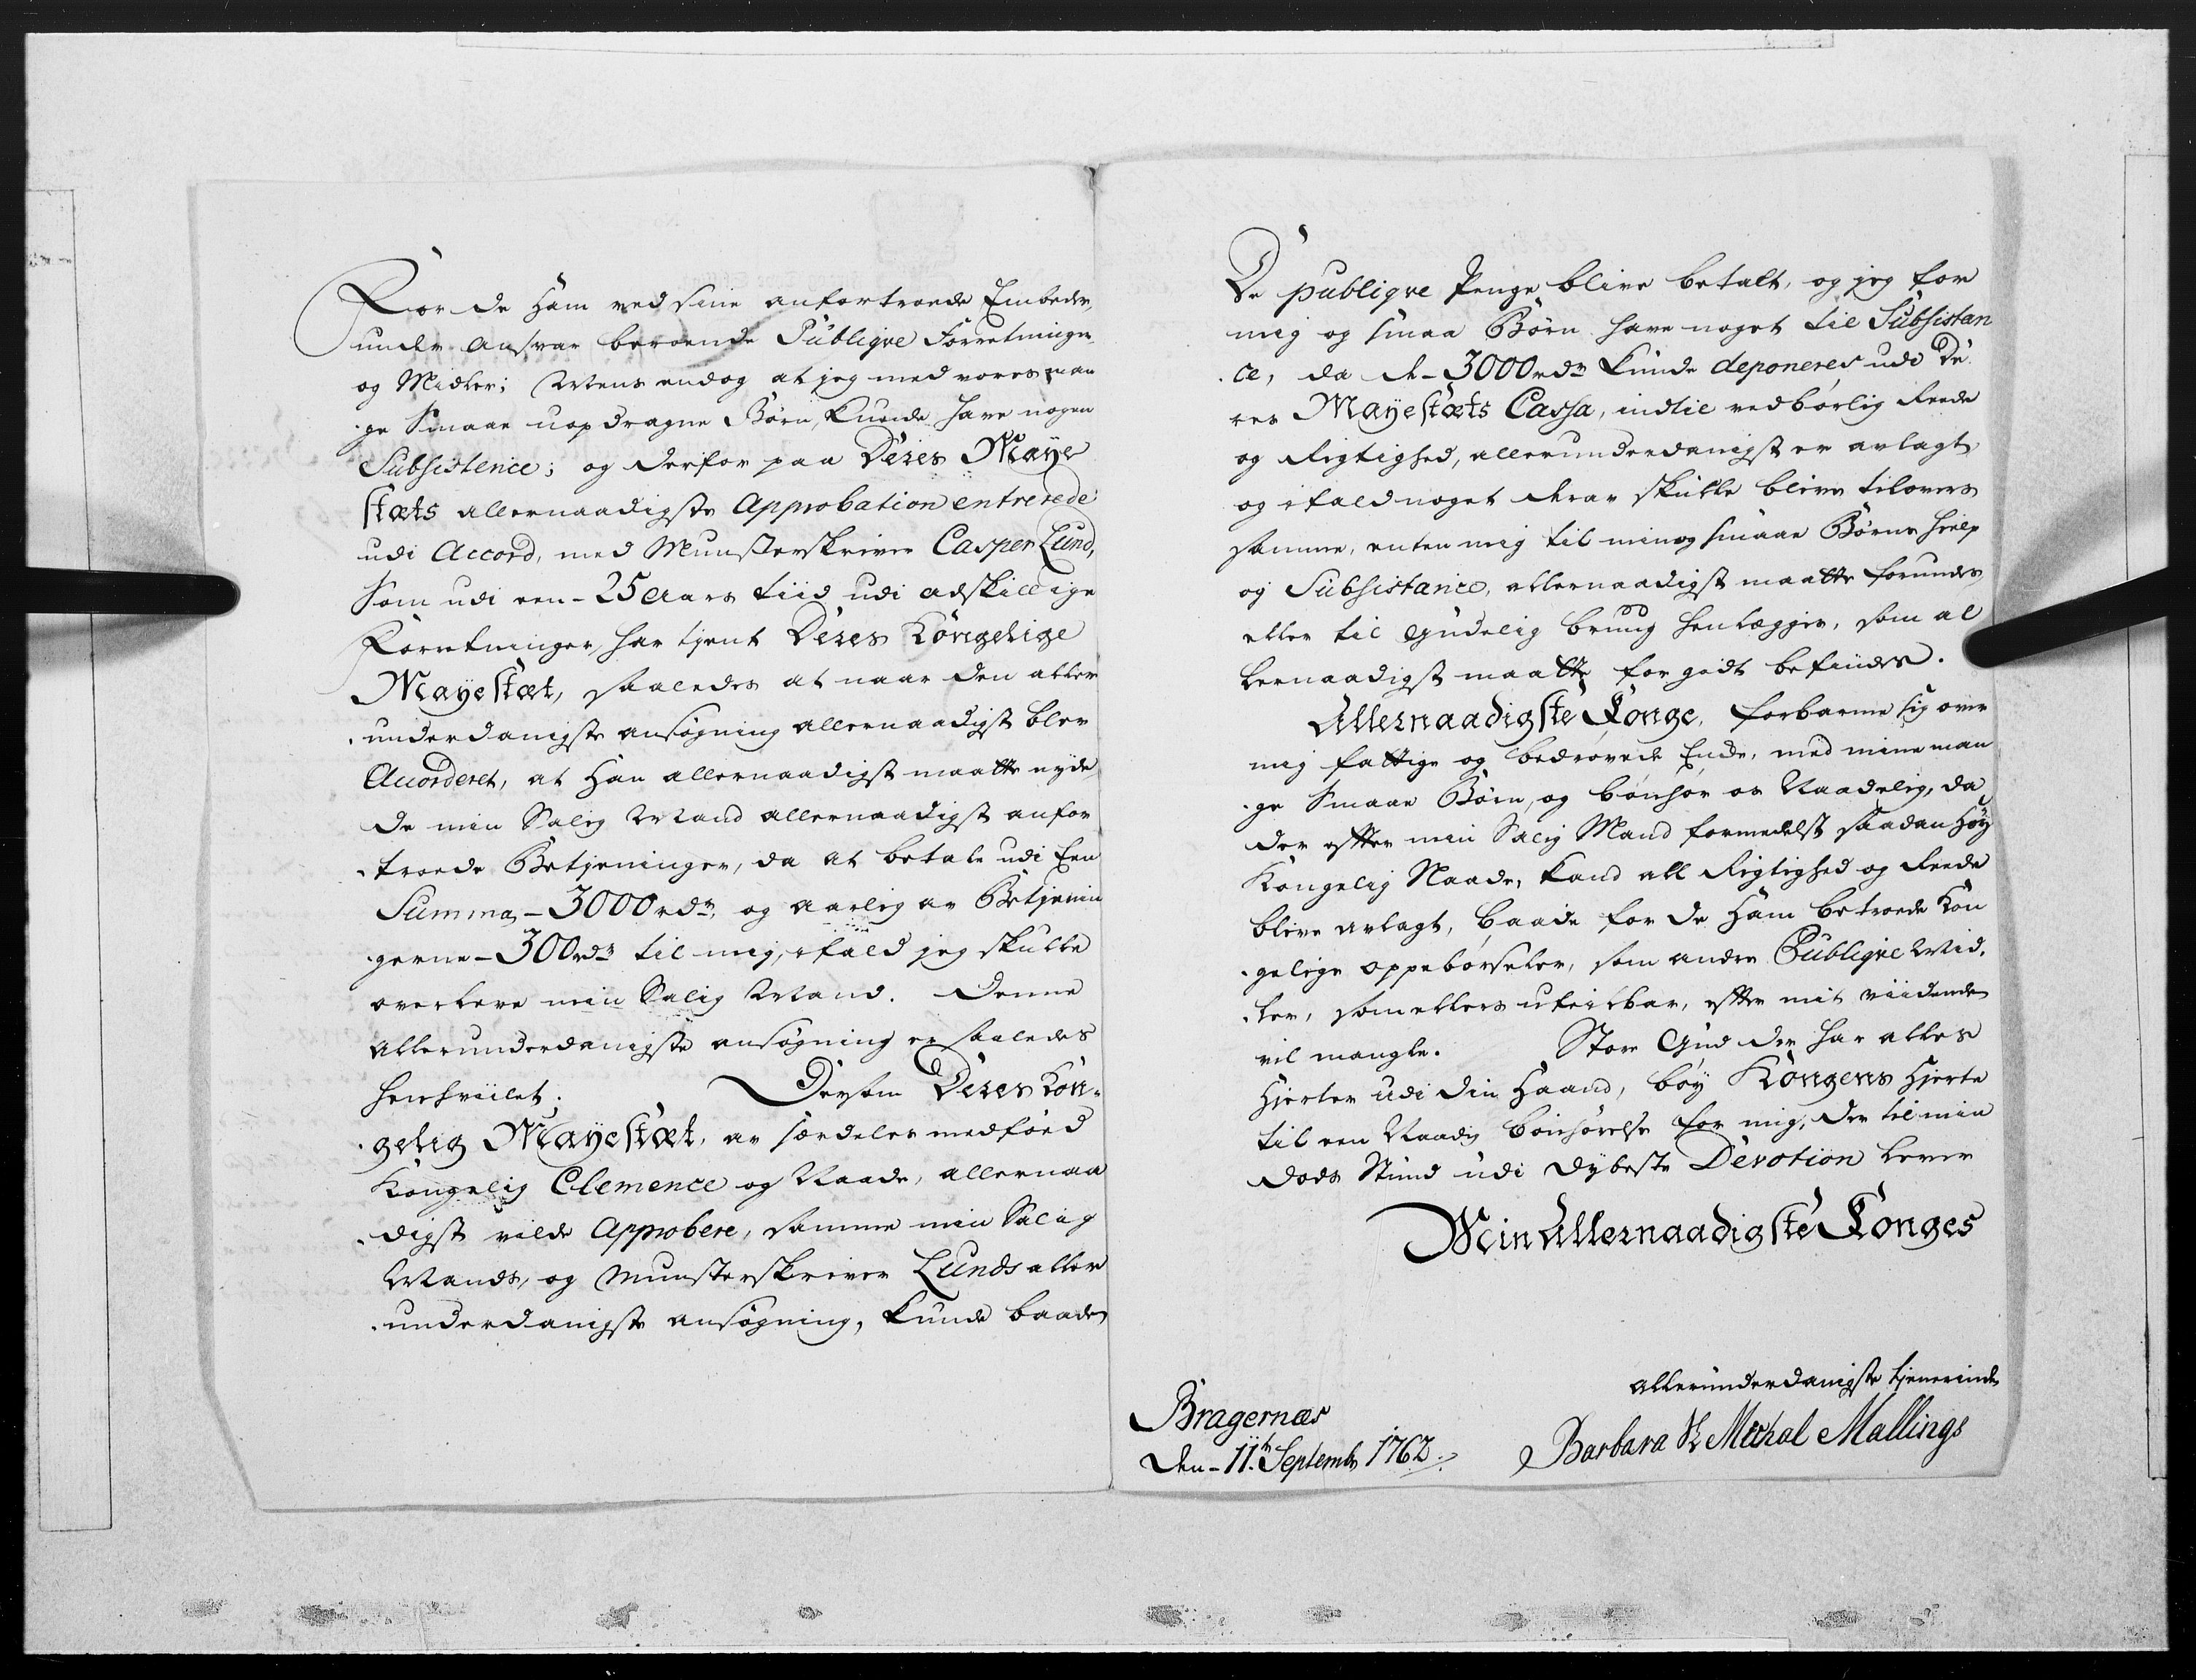 For de Ham ved sine anfortroede Embeder,
under Ansvar beroende Publiqve Forretninger
og Midler; Mens endog at jeg med vores man
ge Smaae uopdragne Børn, kunde have nogen
Subsistence; og derfor paa Deres Maye
stæts allernaadigste Approbation entrerede
udi Accord, med Munsterskriver Casper Lund,
som udi een - 25 Aars tiid udi adskillige
Forretninger, har tjent Deres Kongelige
Mayestæt, saaledes at naar den aller
underdanigste ansøgning allernaadigst blev
Accorderet, at Han allernaadigst maatte nyde
de min Salig Mand allernaadigst anfor
troede Betjeninger, da at betale udi Een
Summa, - 3000 rdr, og aarlig av Betjenin
gerne - 300 rdr til mig, ifald jeg skulle
overleve min Salig Mand. Denne
allerunderdanigste ansøgning er saaledes
henhviilet. Dersom Deres Kon-
gelig Mayestæt, av særdeles medføed
Kongelig Clemence og Naade, allernaa
digst vilde Approbere, samme min Salig
Mands, og Munsterskriver Lunds aller
underdanigste ansøgning, kunde baade
De publiqve Penge blive betalt, og jeg for
mig og smaa Børn have noget til Subsistan
ce, da de - 3000 rdr kunde deponeres udi De
res Mayestæts Cassa, indtil vedbørlig Reede
og Rigtighed, allerunderdanigst er avlagt,
og ifald noget derav skulle blive tilovers
samme, enten mig til min og smaae Børns hielp
og Subsistance, allernaadigst maatte forundes,
eller til Gudelig brug henlægges, som al
lernaadigst maatte for godt befindes.
Allernaadigste Konge, forbarme sig over
mig fattige og bedrøvede Enke, med mine man
ge Smaae Børn, og bønhør os Naadelig, da
der efter min Salig Mand formedelst saadan Høy
Kongelig Naade, kand all Rigtighed og Reede
blive avlagt, baade for de Ham betroede Kon
gelige oppebørseler, som andre Publiqve Mid,
ler, som ellers ufeilbar, efter mit viidende
vil mangle. Store Gud der har alles
Hierter udi din Haand, bøy Kongens Hierte
til een Naadig bønhørelse for mig, der til min
Døds Stund udi dybeste Devotion lever
Min Allernaadigste Konges
allerunderdanigste tjenerinde
Bragernæs
den - 11te Septembr 1762. Barbara Sl Michal Mallings